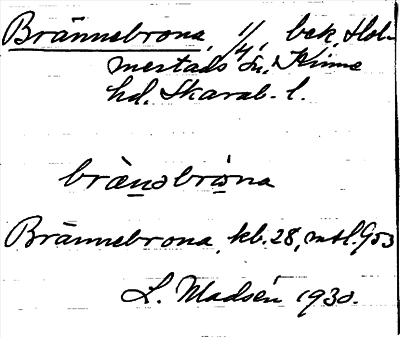 Brännebrona, 1/4, bek, Hol-
mestads sn. Kinne
hd. Skarab. l.
brænəbrωna
Brännebrona, kb. 28, mtl. 953
L. Madsén 1930.